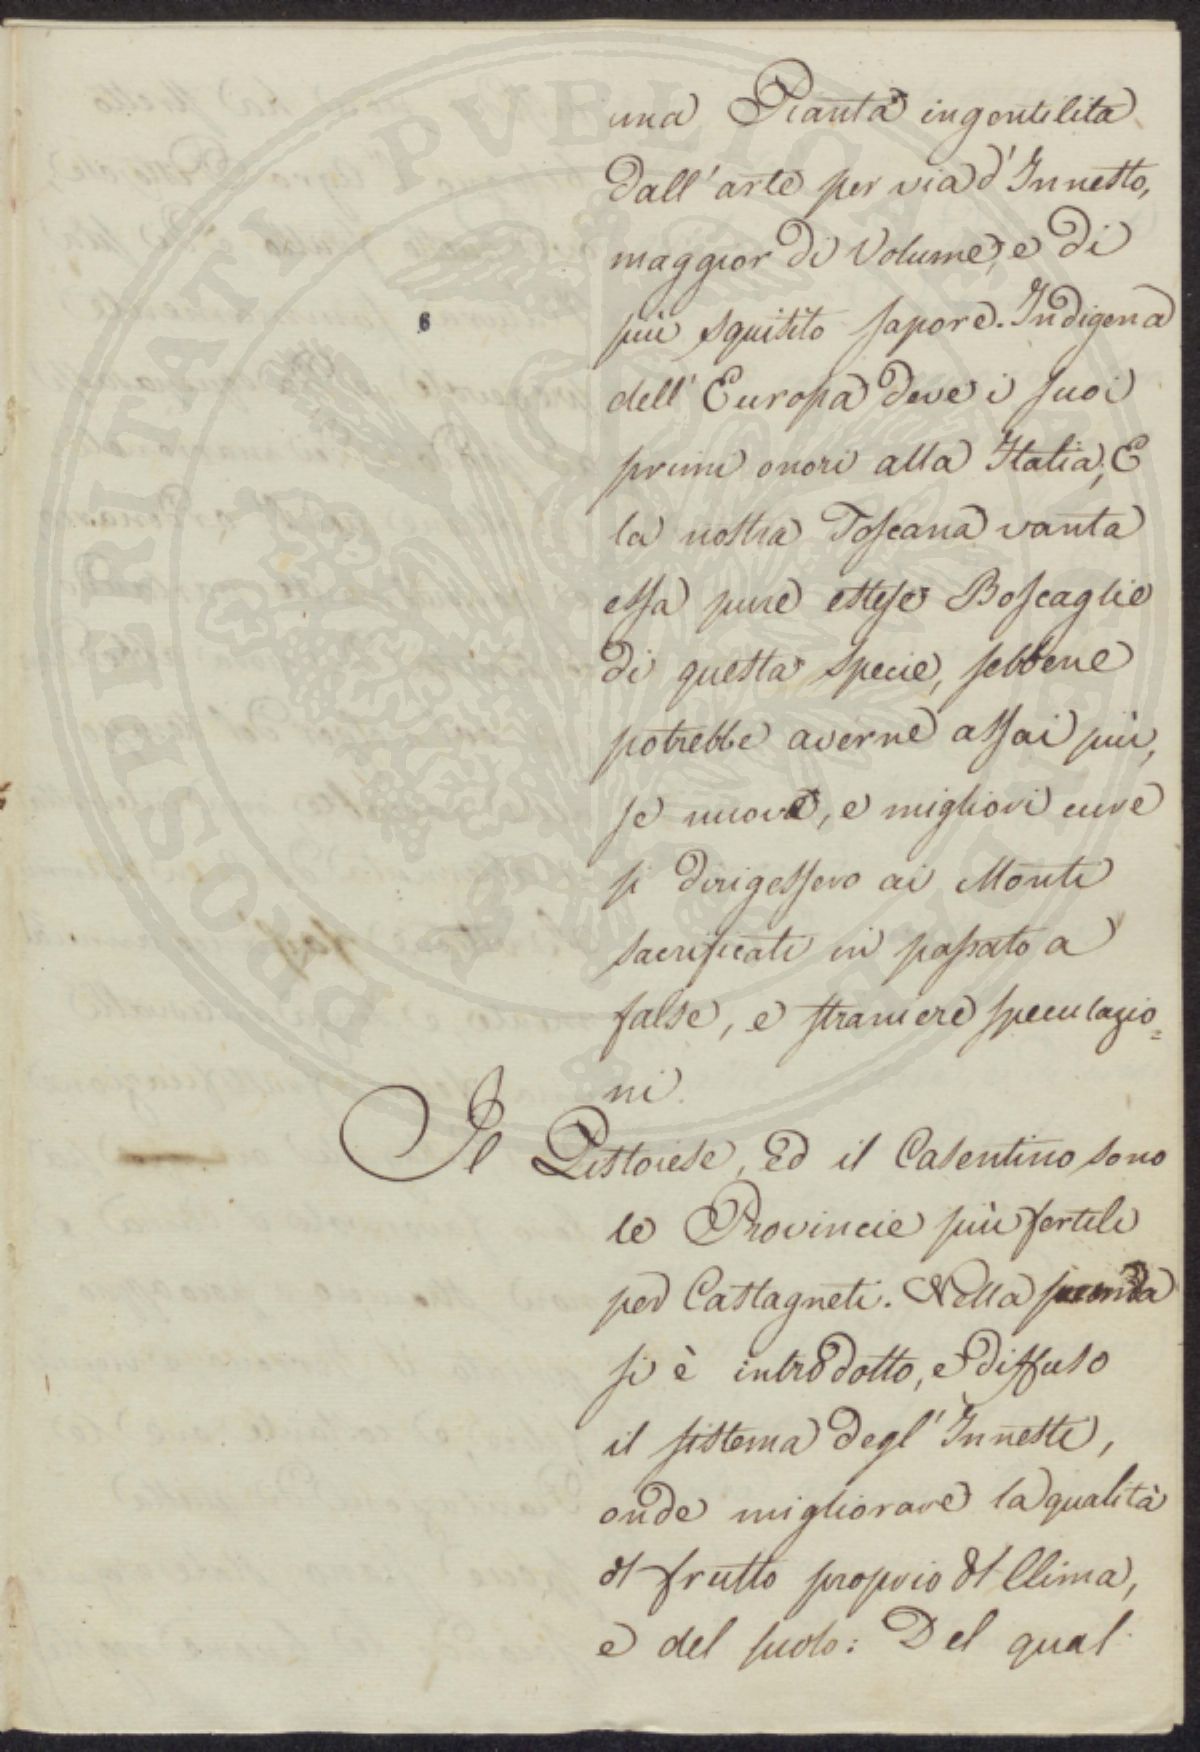 una Pianta ingentilita
dall'arte per via d'Innesto,
maggior di Volume, e di
più squisito sapore. Indigena
dell'Europa deve i suoi
primi onori alla Italia; E
la nostra Toscana vanta
essa pure estese Boscaglie
di questa specie, sebbene
potrebbe averne assai più,
se nuove, e migliori cure
si dirigessero ai Monti
sacrificati in passato a
false, e straniere speculazio=
ni.
Il Pistoiese, Ed il Casentino sono
le Provincie più fertili
per Castagneti. Nella seconda
si è introdotto, e diffuso
il sistema degl'Innesti,
onde migliorare la qualità
del frutto proprio del Clima,
e del suolo: Del qual
PROSPERITATI PVBLICAE